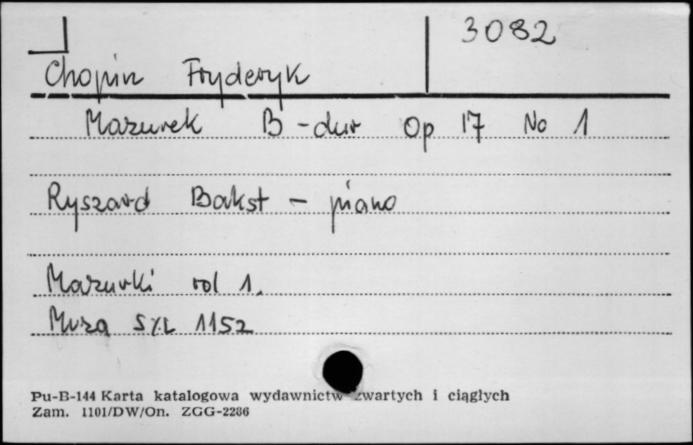 3082
Chopin Fryderyk
Mazurek B-dur Op 17 No 1
Ryszard Bakst - piano
Mazurki vol 1.
Muza SXL 1152
Pu-B-144 Karta katalogowa wydawnictw zwartych i ciągłych
Zam. 1101/DW/On. ZGG-2286